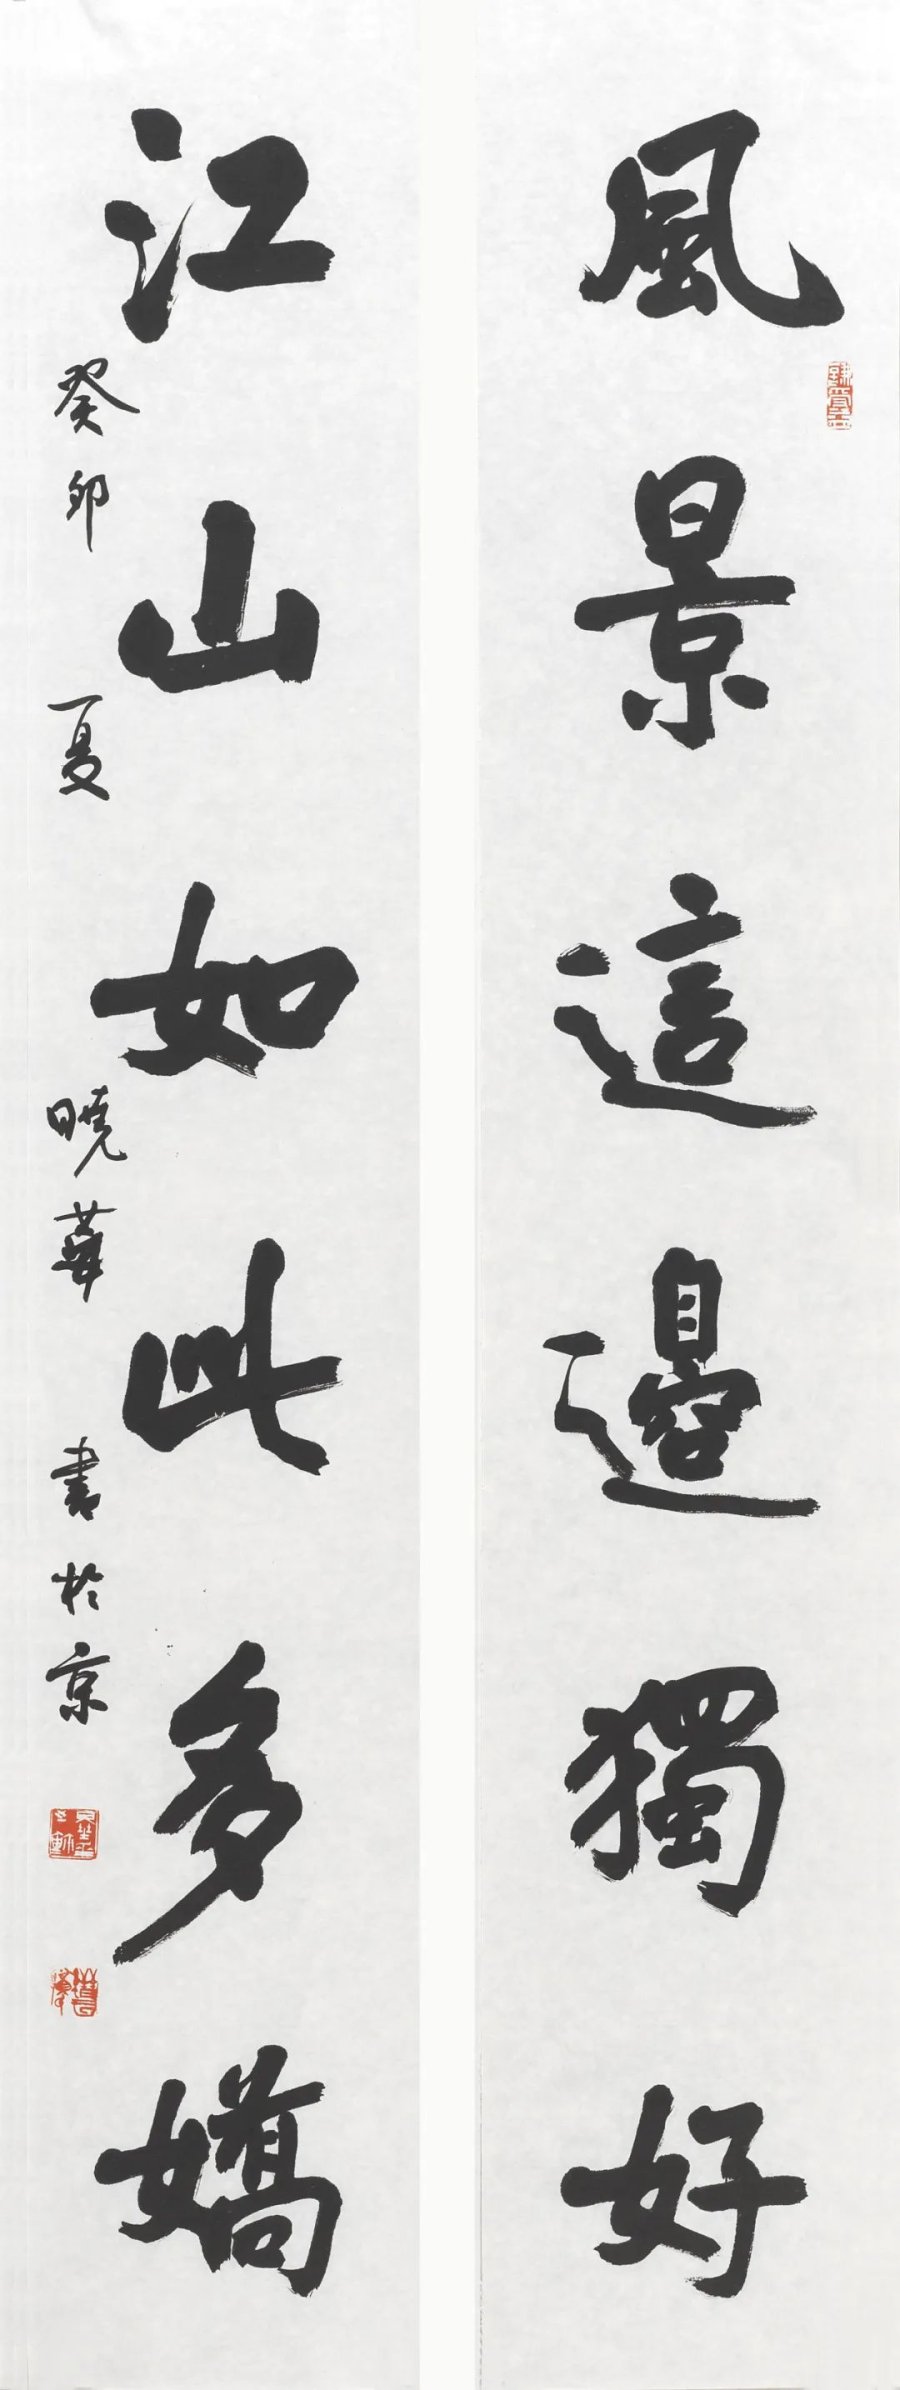 風景這邊獨好
江山如此多嬌
癸卯夏曉華書於京